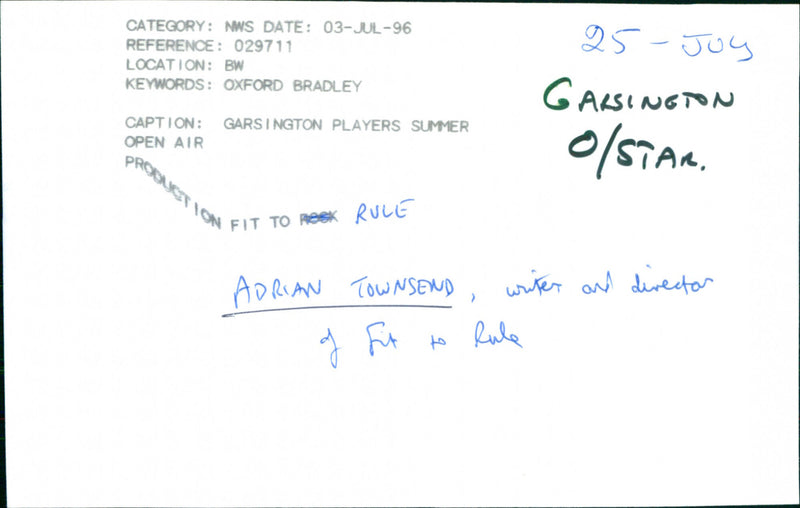 CATEGORY: NWS DATE: 03-JUL-96
REFERENCE: 029711
LOCATION: BW
KEYWORDS: OXFORD BRADLEY
CAPTION: GARSINGTON PLAYERS SUMMER
OPEN AIR
PRODUCTION FIT TO RULE
25 - JUY
GARSINGTON
O/STAR.
ADRIAN TOWNSEND, writer and director
of Fit to Rule